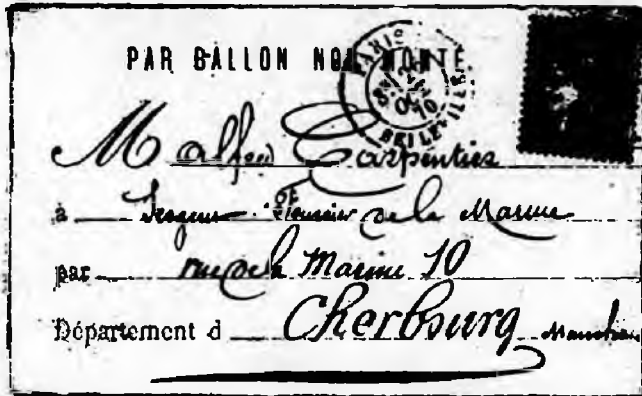 PAR BALLON NON MONTÉ.
PARIS
BELLEVILLE
M Alfred Carpentier
à de la Marine
par rue de la Marine 10
Département d Cherbourg Manche